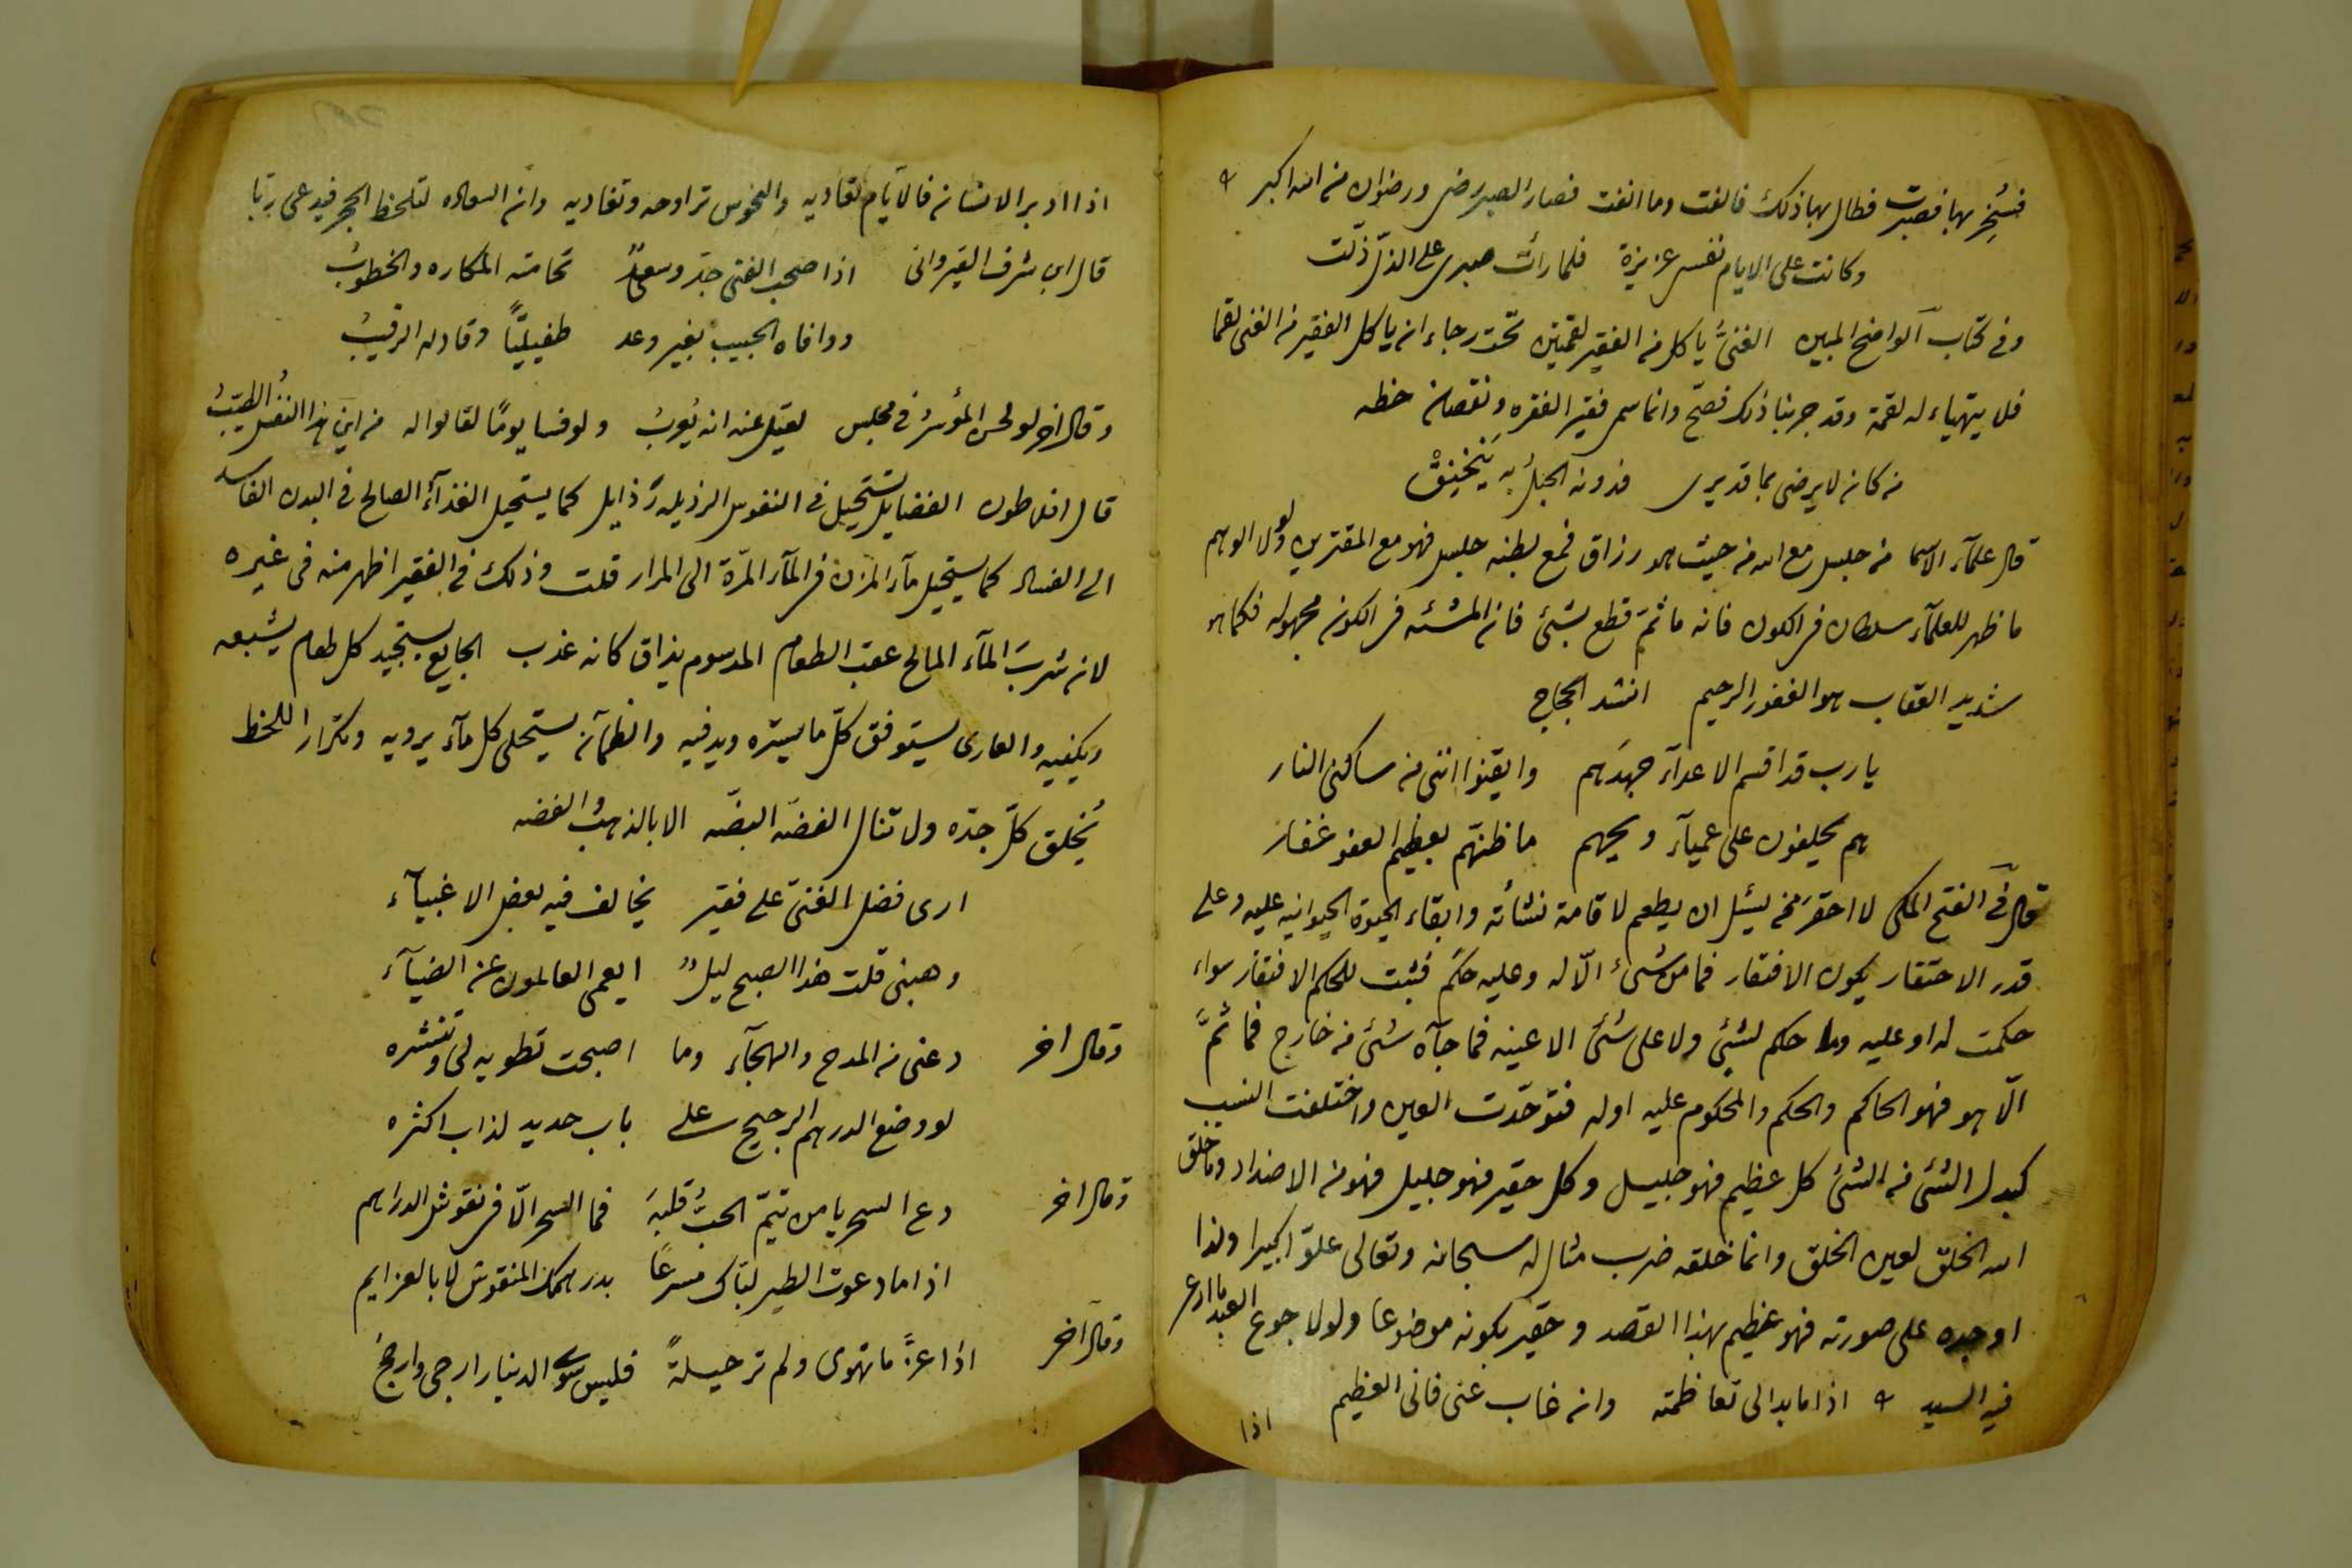 فسُخِر بها فصبرت فطال بها ذلك فالفت وما انفت فصار الصبر رضى ورضوان من الله اكبر
وكانت على الايام نفسى عزيزة فلما رأت صبرى على الذل ذلت
وفى كتاب الواضح المبين الغنىُّ ياكل من الفقير لقمتين تحت رجاء ان ياكل الفقير من الغنى لقما
فلا يتهياء له لقمة وقد جربنا ذلك فصح وانما سمى فقير الفقره ونقصان حظه
من كان لا يرضى بما قد يرى فدونه الحبل به يَنخنِقْ
قال علماء الاسما من جلس مع الله من حيث هو رزاق فمع بطنه جلس فهو مع المقترين ولولا الوهم
ما ظهر للعلماء سلطان فى الكون فانه ما ثمَّ قطع بشئ فان المشئه فى الكون مجهوله فكما هو
شديد العقاب هو الغفور الرحيم انشد الحجاج
يا رب قد اقسم الاعداء جهدَهم وايقنوا اننى من ساكنى النار
هم يحلفون على عمياء ويحهم ما ظنهم بعظيم العفو غفار
قال فى الفتح المكى لا احقر ممن يسئل ان يطعم لاقامة نشأته وابقاء الحيوة الحيوانيه عليه وعلى
قدر الاحتقار يكون الافتقار فما من شئ الّا له وعليه حكم فثبت للحكم الافتقار سواء
حكمت له او عليه وما حكم لشئ ولا على شئ الا عينه فما جآه شئ من خارج فما ثمَّ
الّا هو فهو الحاكم والحكم والمحكوم عليه او له فتوحّدت العين واختلفت النسب
كبدل الشئ من الشئ كل عظيم فهو جليل وكل حقير فهو جليل فهو من الاضداد وما خلق
الله الخلق لعين الخلق وانما خلقه ضرب مثال له سبحانه وتعالى علوّا كبيرا ولذا
اوجده على صورته فهو عظيم بهذا القصد وحقير بكونه موضوعا ولولا جوع العبد ما ادعى
فيه السيد اذا ما بدا لى تعاظمته وان غاب عنى فانى العظيم
اذا
اذا ادبر الانسان فالايام تعاديه والنحوس تراوحه وتغاديه وان السعاده لتلحظ الحجر فيدعى ربّا
قال ابن شرف القيروانى اذا صحب الفتى جدّ وسعدٌ تحامته المكاره والخطوبُ
ووافاه الحبيب بغير وعد طفيليّاً وقاد له الرقيبُ
وقال اخر لو لحن المؤسرُ فى مجلس لقيل عنه انه يُعربُ ولو فسا يومًا لقالوا له من اين هذا النفس الطيّبُ
قال افلاطون الفضايل تستحيل فى النفوس الرذيله رذايل كما يستحيل الغذآءُ الصالح فى البدن الفاسد
الى الفساد كما يستحيل مآء المزن فى المآء المرّة الى المرار قلت وذلك فى الفقير اظهر منه فى غيره
لان شربَ المآء المالح عقب الطعام المدسوم يذاق كانه عذب الجايع يستجيد كل طعام يشبعه
ويكفيه والعارى يستوفق كلّ ما يستره ويدفيه والظمآن يستحلى كل مآء يرويه وتكرار اللحظ
يُخلق كلّ جدّه ولا تنال الفضّه البضّه الا بالذهب والفضه
ارى فضل الغنىّ على فقير يخالف فيه بعض الاغبيآء
وهبنى قلت هذا الصبح ليلٌ ايعمى العالمون عن الضيآء
وقال اخر دعنى من المدح والهجآء وما اصبحت تطويه لى وتنشره
لو وضع الدرهم الرجيح على باب حديد لذاب اكثره
وقال اخر دع السحر يا من تيّم الحبُّ قلبهَ فما السحر الّا فى نقوش الدراهم
اذا ما دعوت الطير لبّاك مسرعاً بدرهمك المنقوش لا بالعزايم
وقال آخر اذا عزَّ ما تهوى ولم تر حيلةً فليس سوى الدينار ارجى وارجحُ